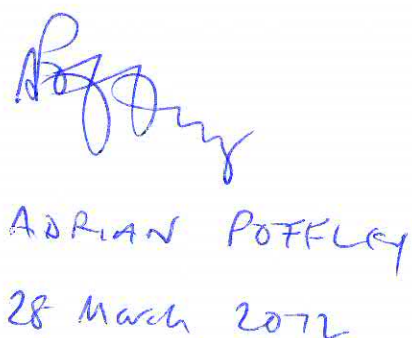 ADRIAN POFFLEY
28 March 2012